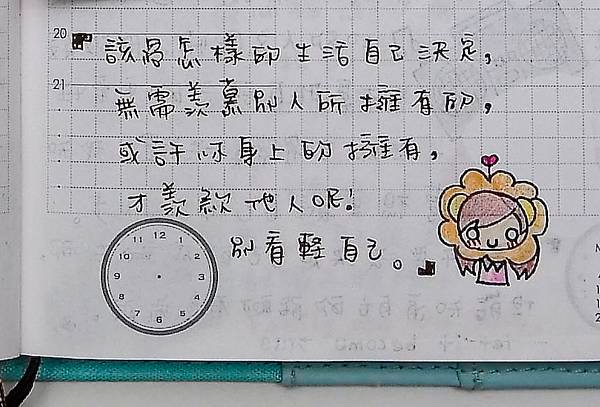 20
「該過怎樣的生活自己決定，
21
無需羨慕別人所擁有的，
或許你身上的擁有，
才羨他人呢！
別看輕自己。」
11 12 1
10 2
9 3
8 4
7 6 5